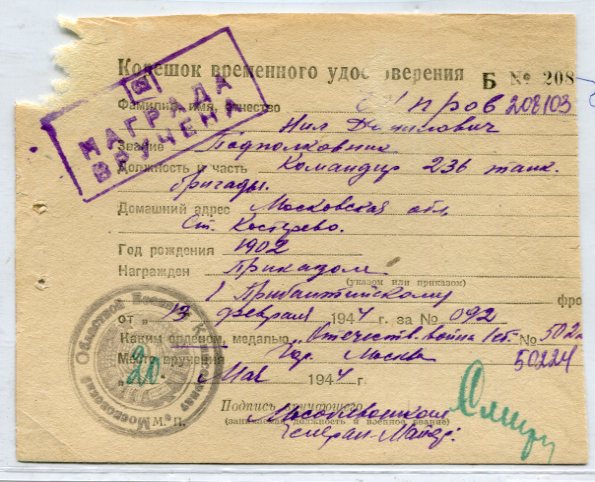 Корешок временного удостоверения Б № 208
НАГРАДА
ВРУЧЕНА
Фамилия, имя, отчество 208103
Нил Данилович
Звание Подполковник
Должность и часть Командир 236 танк.
бригады.
Домашний адрес Московская обл
Ст. Костерево.
Год рождения 1902
Награжден Приказом
(указом или приказом)
1 Прибалтийскому фро
от „ 19 февраля 1944 г. за № 092
Каким орденом, медалью „Отечеств. война 1 ст. № 502
50224
Место вручения Гор. Москва
„ 20 „ Мая 1944 г.
М. П.
Подпись
(занимаемая должность и военное звание)
Генерал-Майор: